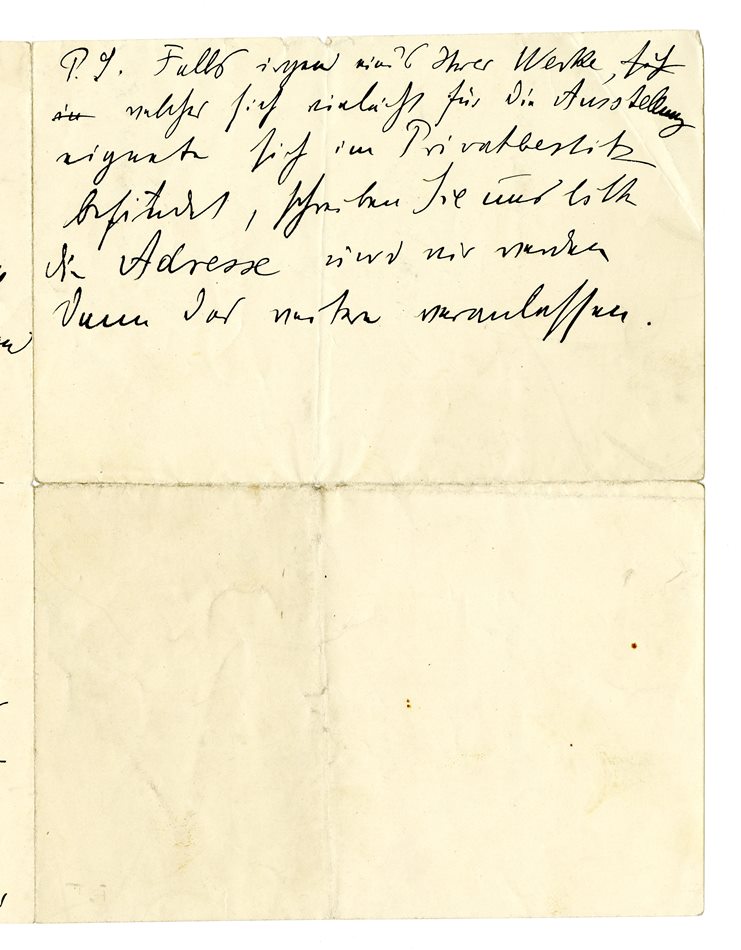 P.S. Falls irgend eins Ihrer Werke, sich
in welches sich vielleicht für die Ausstellung
eignete sich im Privatbesitz
befindet, schreiben Sie uns bitte
die Adresse und wir werden
dann das weitere veranlassen.